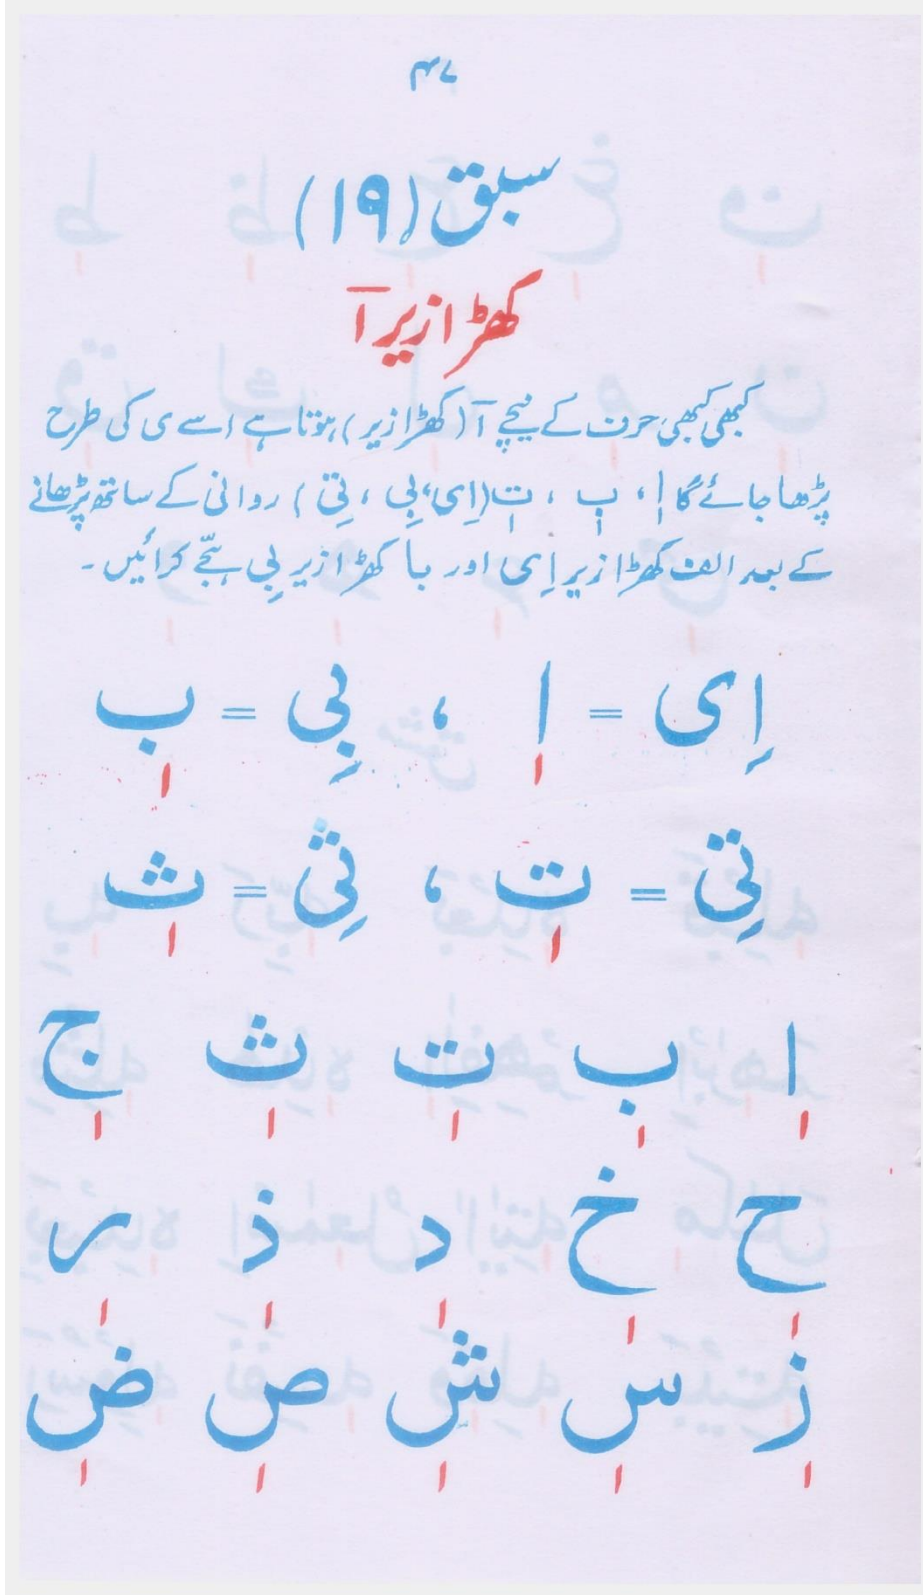 ۴۷
سبق (۱۹)
کھڑا زیر آ
کبھی کبھی حرف کے نیچے آ (کھڑا زیر) ہوتا ہے اسے ی کی طرح
پڑھا جائے گا اٖ، بٖ ، تٖ (اِی، بِی ، تِی ) روانی کے ساتھ پڑھانے
کے بعد الف کھڑا زیر اِی اور با کھڑا زیر بِی ہجّے کرائیں۔
اِی = اٖ ، بِی = بٖ
تِی = تٖ ، ثِی = ثٖ
اٖ بٖ تٖ ثٖ جٖ
حٖ خٖ دٖ ذٖ رٖ
زٖ سٖ شٖ صٖ ضٖ